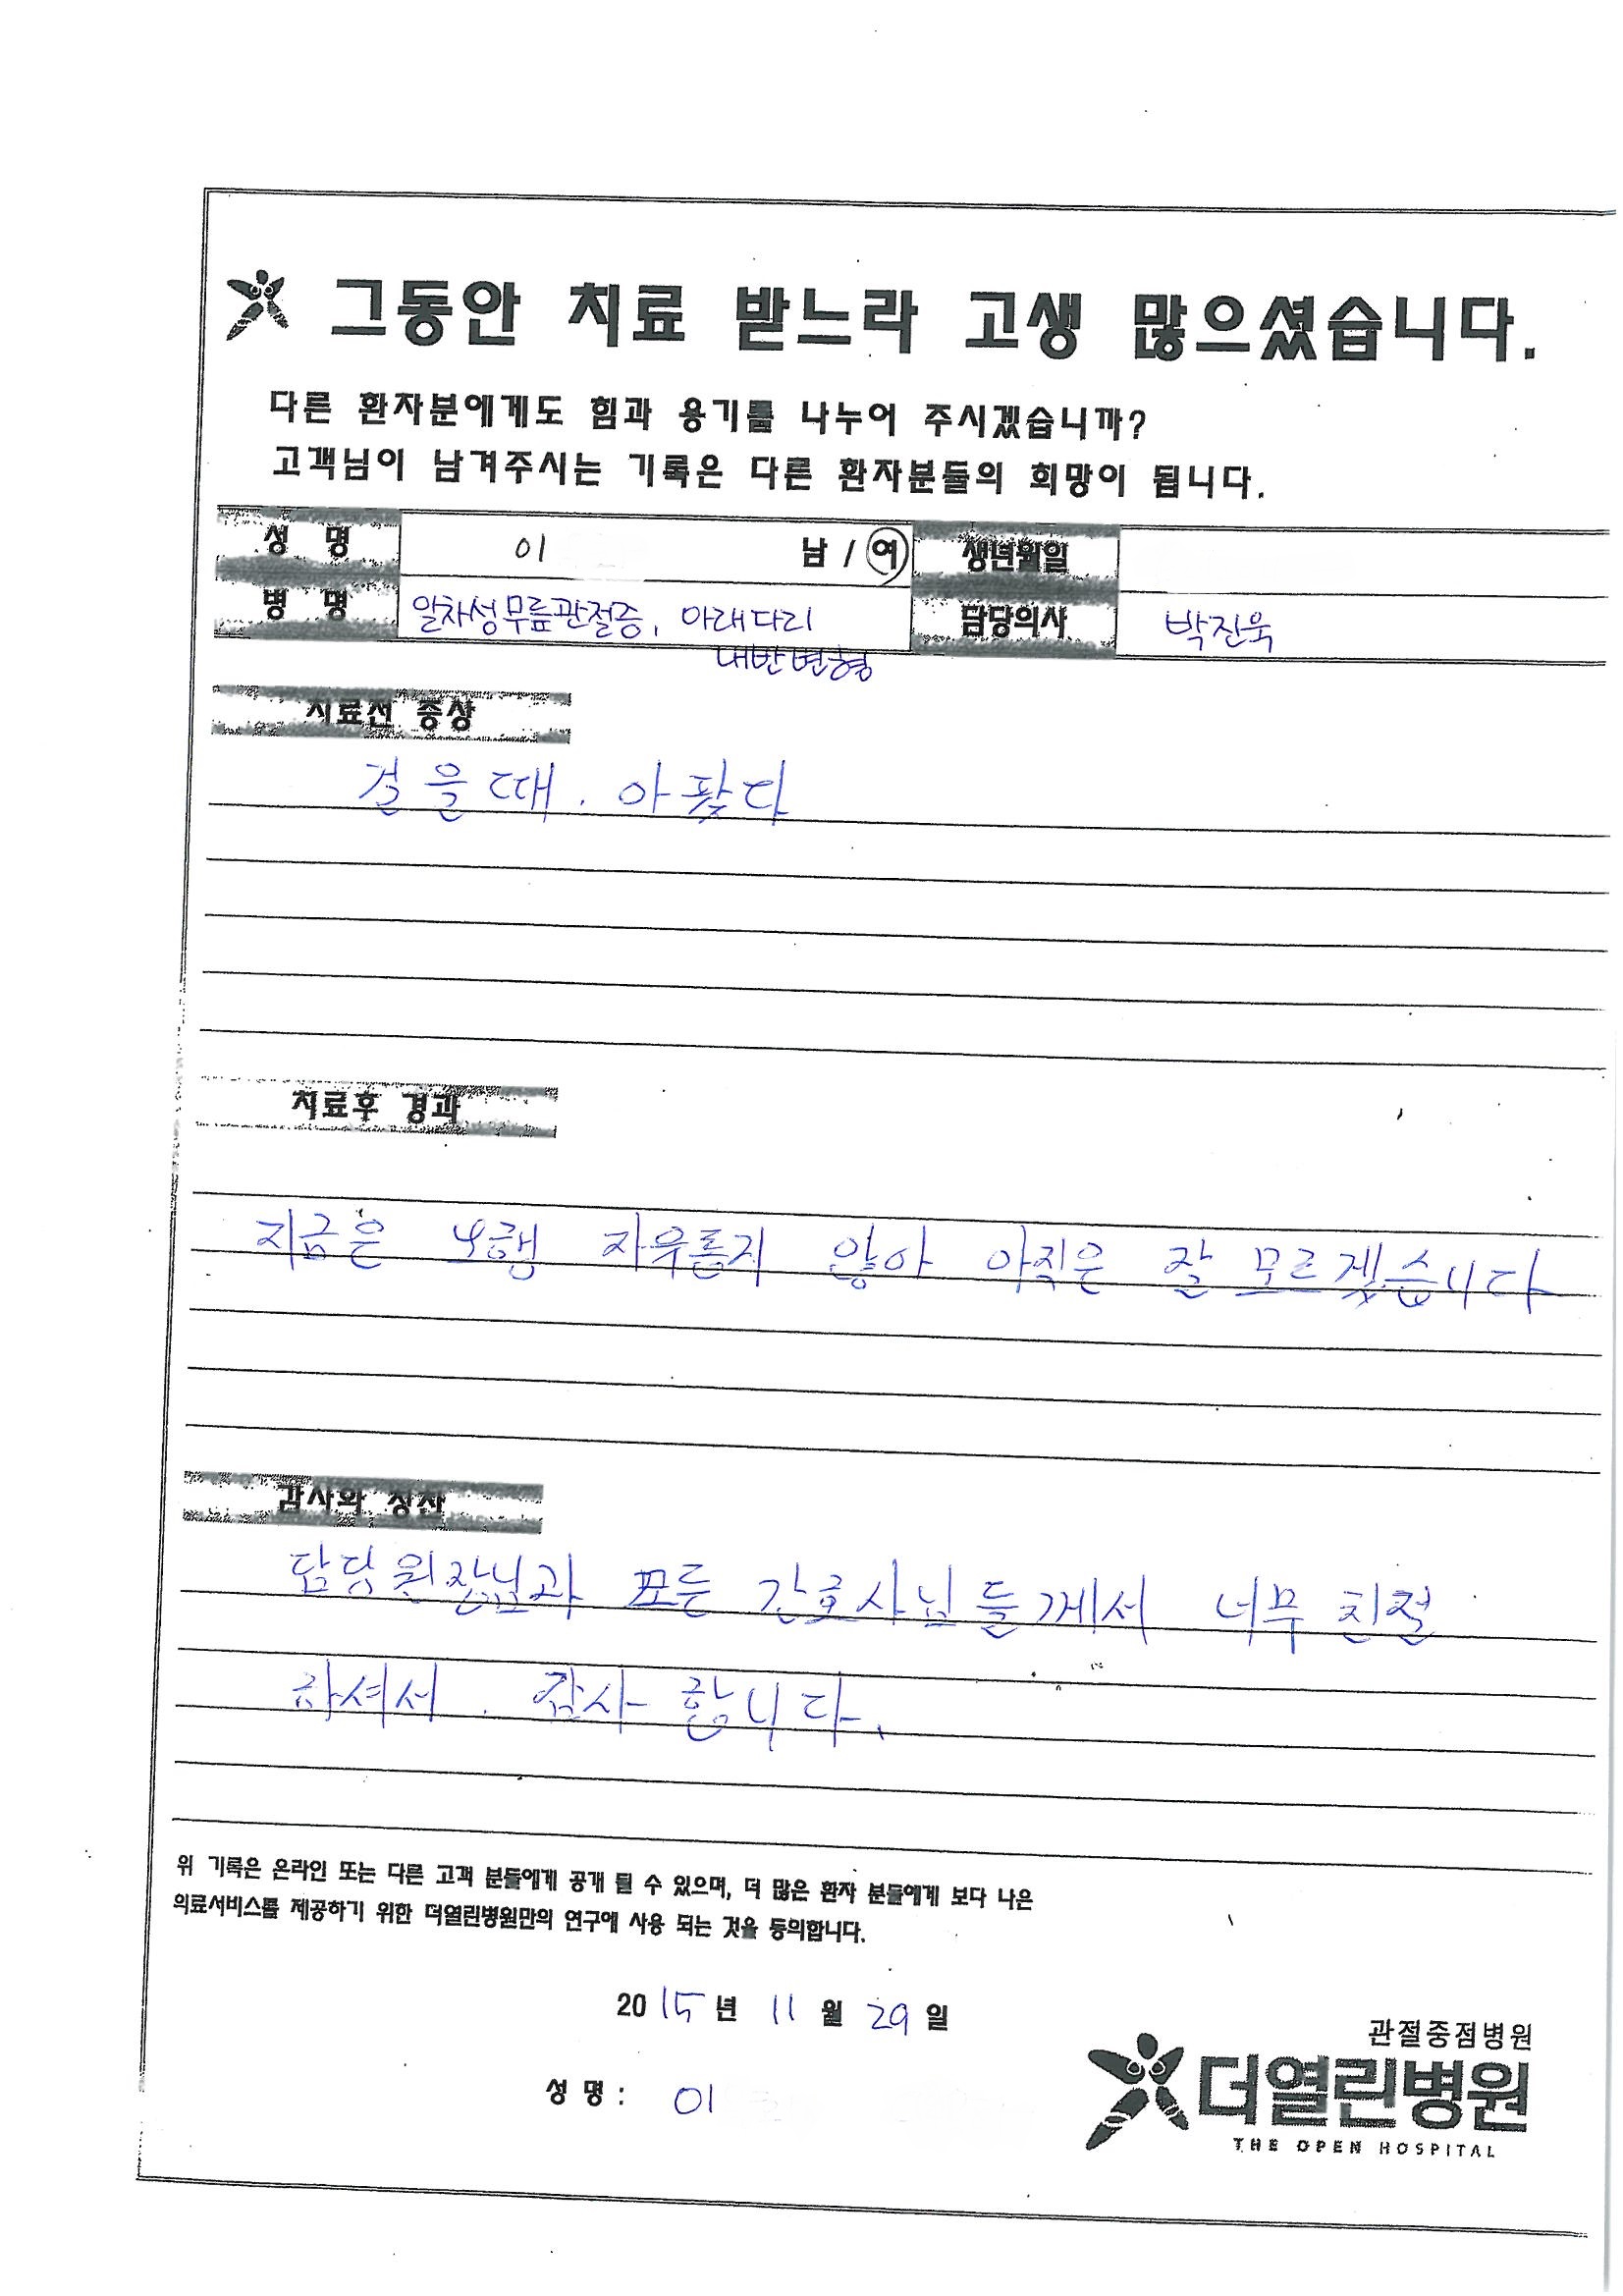 그동안 치료 받느라 고생 많으셨습니다.
다른 환자분에게도 힘과 용기를 나누어 주시겠습니까?
고객님이 남겨주시는 기록은 다른 환자분들의 희망이 됩니다.
성 명 이 남 / 여 생년월일
병 명 일차성무릎관절증, 아래다리 담당의사 박진욱
내반변형
치료전 증상
걸을때. 아팢다
치료후 경과
지금은 보행 자유롭지 않아 아직은 잘 모르겠습니다
감사와 칭찬
담당원장님과 모든 간호사님들께서 너무 친절
하셔서. 감사 합니다.
위 기록은 온라인 또는 다른 고객 분들에게 공개 될 수 있으며, 더 많은 환자 분들에게 보다 나은
의료서비스를 제공하기 위한 더열린병원만의 연구에 사용 되는 것을 동의합니다.
2015년 11월 29일
관절중점병원
성 명 : 이
더열린병원
THE OPEN HOSPITAL